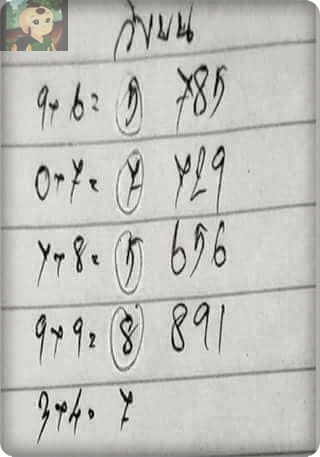 วิ่งบน
9+6= 5 785
0+7= 7 729
7+8= 5 656
9+9= 8 891
3+4= 7